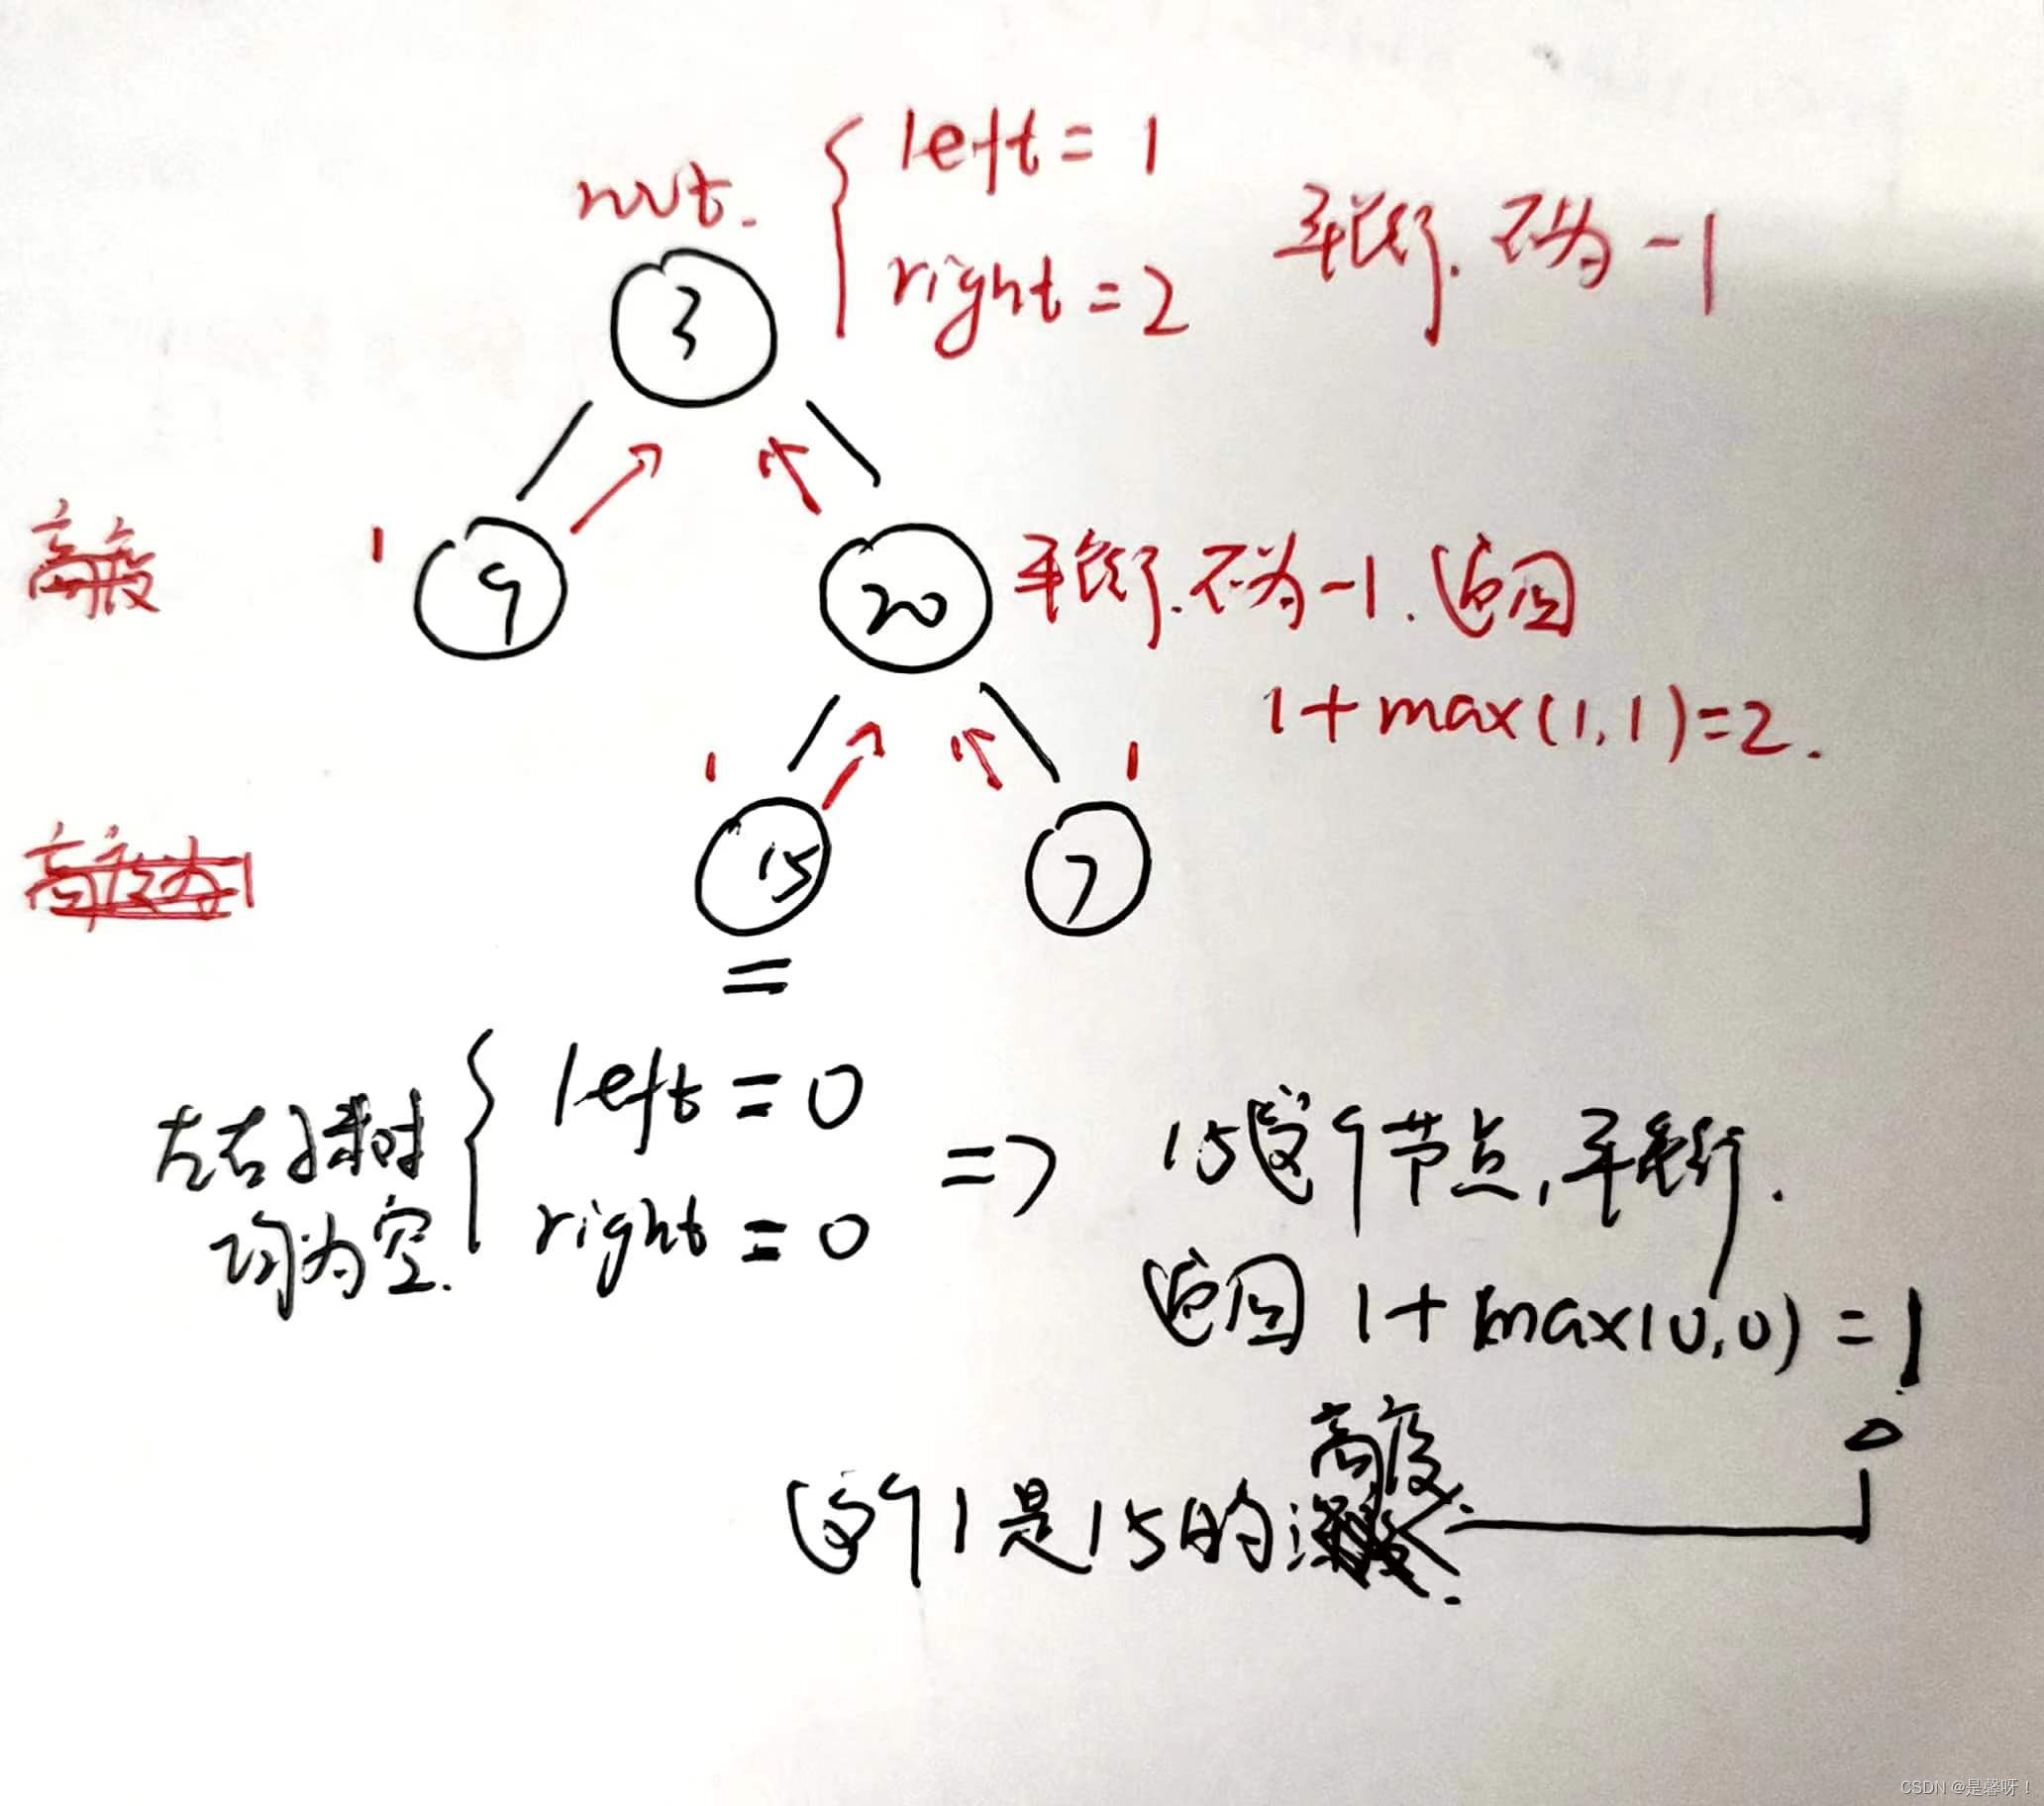 root.
left = 1
right = 2
平衡. 不为 -1
3
高度
1
9
20
平衡. 不为 -1. 返回
1 + max(1,1) = 2.
1
1
高度为1
15
7
=
左右子树
均为空.
left = 0
right = 0
=>
15这个节点, 平衡.
返回 1 + max(0,0) = 1
高度
这个1是15的
CSDN @是馨呀！